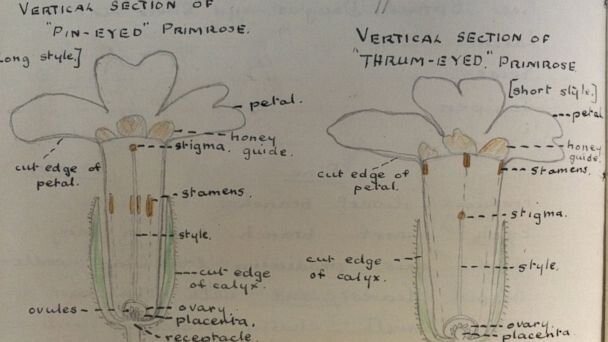 VERTICAL SECTION OF
"PIN-EYED" PRIMROSE.
long style.]
petal.
honey
guide.
stigma.
cut edge of
petal.
stamens.
style.
cut edge
of calyx.
ovules
ovary
placenta.
receptacle
VERTICAL SECTION OF
"THRUM-EYED," PRIMROSE
[short style.]
petal
honey
guide.
stamens.
cut edge of
petal.
stigma.
cut edge
of calyx.
style.
ovary.
placenta